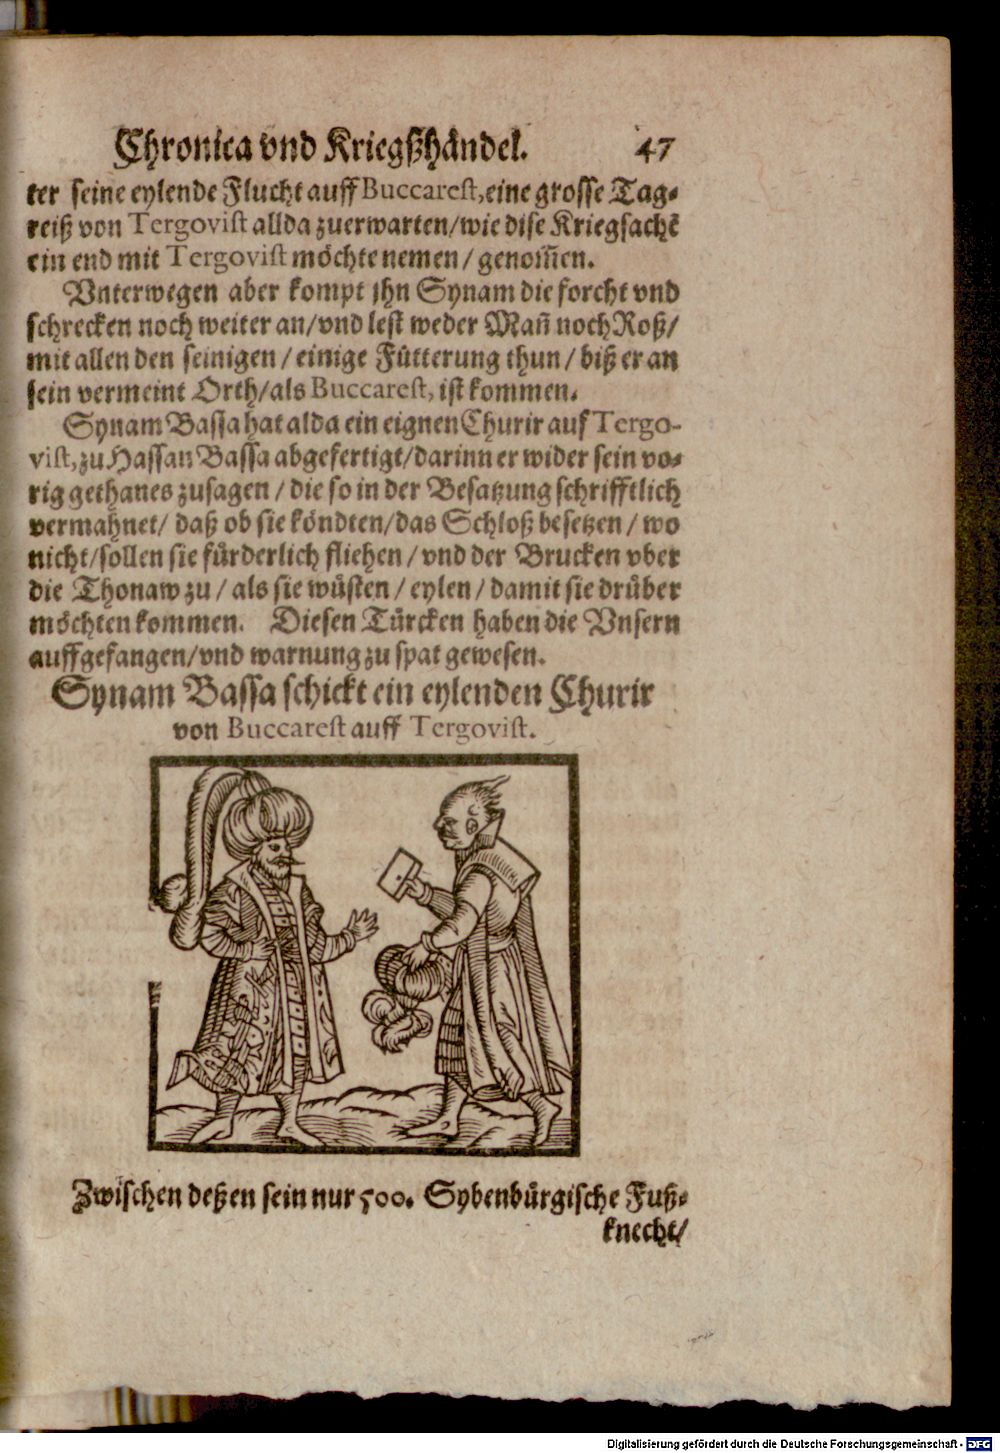 Chronica vnd Kriegßhändel. 47
ter seine eylende Flucht auff Buccarest, eine grosse Tag-
reiß von Tergovist allda zuerwarten/ wie dise Kriegsachē
ein end mit Tergovist möchte nemen/ genom̃en.
Vnterwegen aber kompt jhn Synam die forcht vnd
schrecken noch weiter an/ vnd lest weder Mañ noch Roß/
mit allen den seinigen/ einige Fütterung thun/ biß er an
sein vermeint Orth/ als Buccarest, ist kommen.
Synam Bassa hat alda ein eignen Churir auf Tergo-
vist, zu Hassan Bassa abgefertigt/ darinn er wider sein vo-
rig gethanes zusagen/ die so in der Besatzung schrifftlich
vermahnet/ daß ob sie köndten/ das Schloß besetzen/ wo
nicht/ sollen sie fürderlich fliehen/ vnd der Brucken vber
die Thonaw zu/ als sie wüsten/ eylen/ damit sie drüber
möchten kommen. Diesen Türcken haben die Vnsern
auffgefangen/ vnd warnung zu spat gewesen.
Synam Bassa schickt ein eylenden Churir
von Buccarest auff Tergovist.
Zwischen deßen sein nur 500. Sybenbürgische Fuß-
knecht/
Digitalisierung gefördert durch die Deutsche Forschungsgemeinschaft - DFG